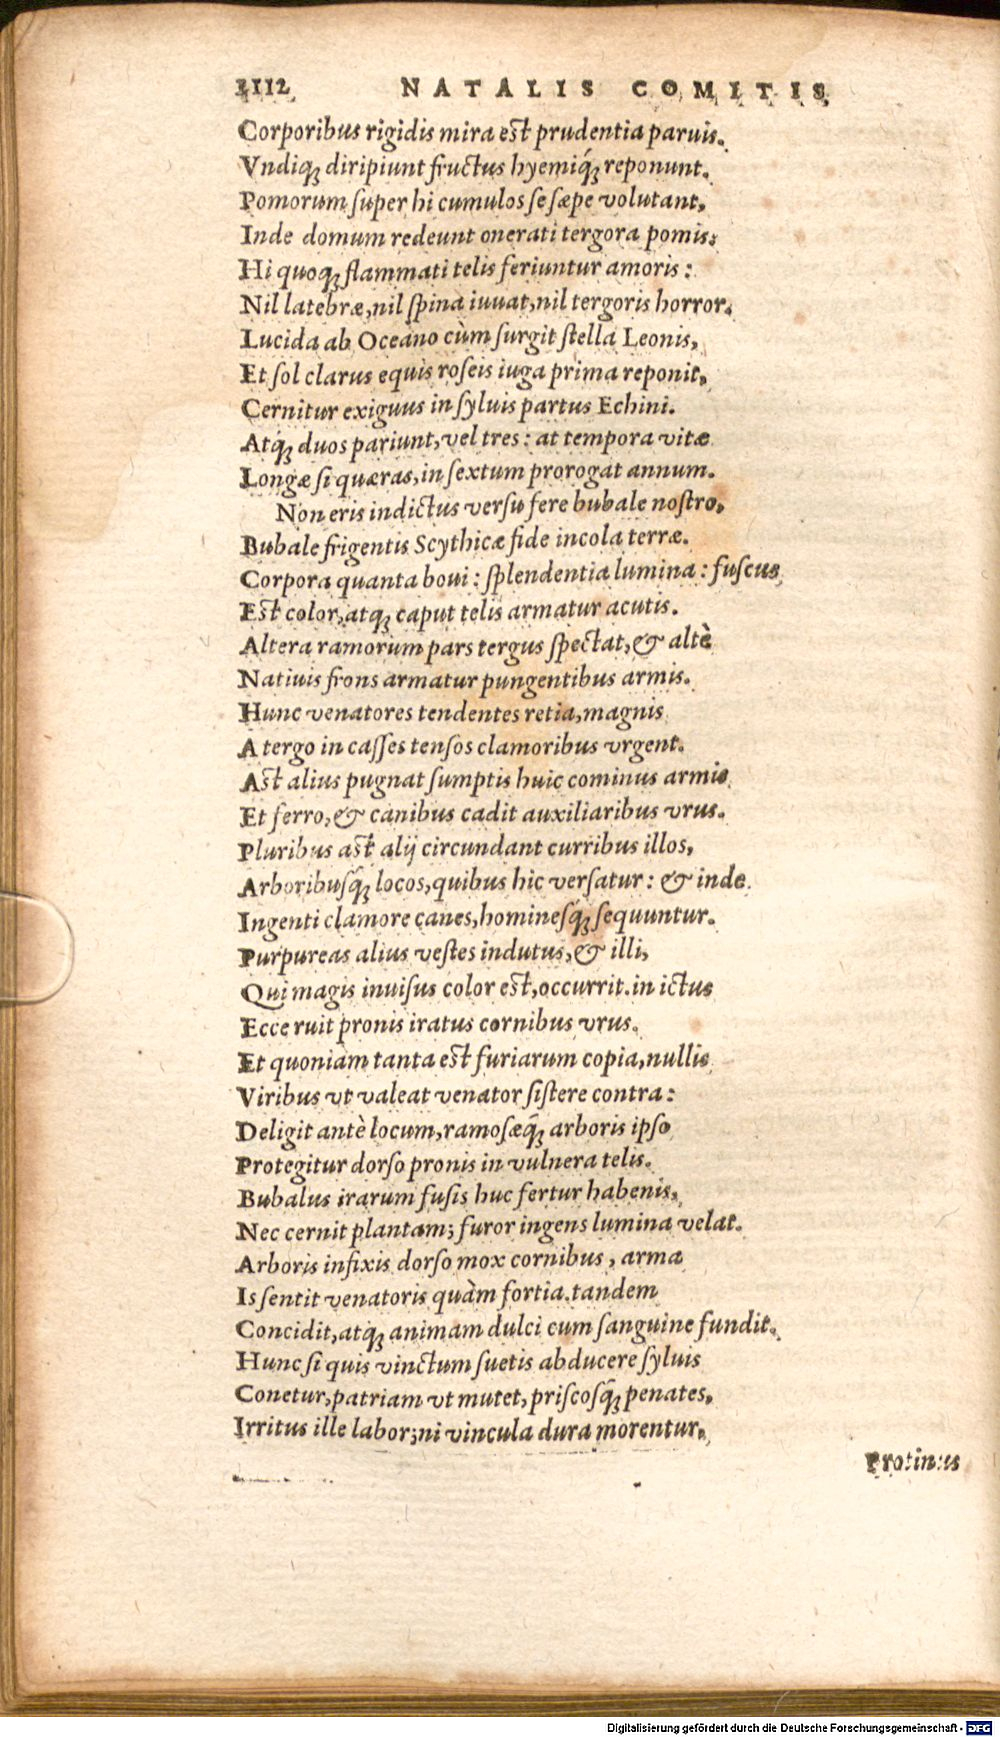 1112 NATALIS COMITIS
Corporibus rigidis mira est prudentia paruis.
Vndiq; diripiunt fructus hyemiq́; reponunt.
Pomorum super hi cumulos se sæpe volutant,
Inde domum redeunt onerati tergora pomis:
Hi quoq; flammati telis feriuntur amoris:
Nil latebræ, nil spina iuuat, nil tergoris horror.
Lucida ab Oceano cùm surgit stella Leonis,
Et sol clarus equis roseis iuga prima reponit,
Cernitur exiguus in syluis partus Echini.
Atq́; duos pariunt, vel tres: at tempora vitæ
Longæ si quæras, in sextum prorogat annum.
Non eris indictus versu fere bubale nostro,
Bubale frigentis Scythicæ fide incola terræ.
Corpora quanta boui: splendentia lumina: fuscus
Est color, atq; caput telis armatur acutis.
Altera ramorum pars tergus spectat, & altè
Natiuis frons armatur pungentibus armis.
Hunc venatores tendentes retia, magnis
A tergo in casses tensos clamoribus vrgent.
Ast alius pugnat sumptis huic cominus armis
Et ferro, & canibus cadit auxiliaribus vrus.
Pluribus ast alij circundant curribus illos,
Arboribusq́; locos, quibus hic versatur: & inde
Ingenti clamore canes, hominesq́; sequuntur.
Purpureas alius vestes indutus, & illi,
Qui magis inuisus color est, occurrit. in ictus
Ecce ruit pronis iratus cornibus vrus.
Et quoniam tanta est furiarum copia, nullis
Viribus vt valeat venator sistere contra:
Deligit antè locum, ramosæq́; arboris ipso
Protegitur dorso pronis in vulnera telis.
Bubalus irarum fusis huc fertur habenis,
Nec cernit plantam; furor ingens lumina velat.
Arboris infixis dorso mox cornibus, arma
Is sentit venatoris quàm fortia. tandem
Concidit, atq; animam dulci cum sanguine fundit.
Hunc si quis vinctum suetis abducere syluis
Conetur, patriam vt mutet, priscosq́; penates,
Irritus ille labor; ni vincula dura morentur,
Protinus
Digitalisierung gefördert durch die Deutsche Forschungsgemeinschaft - DFG